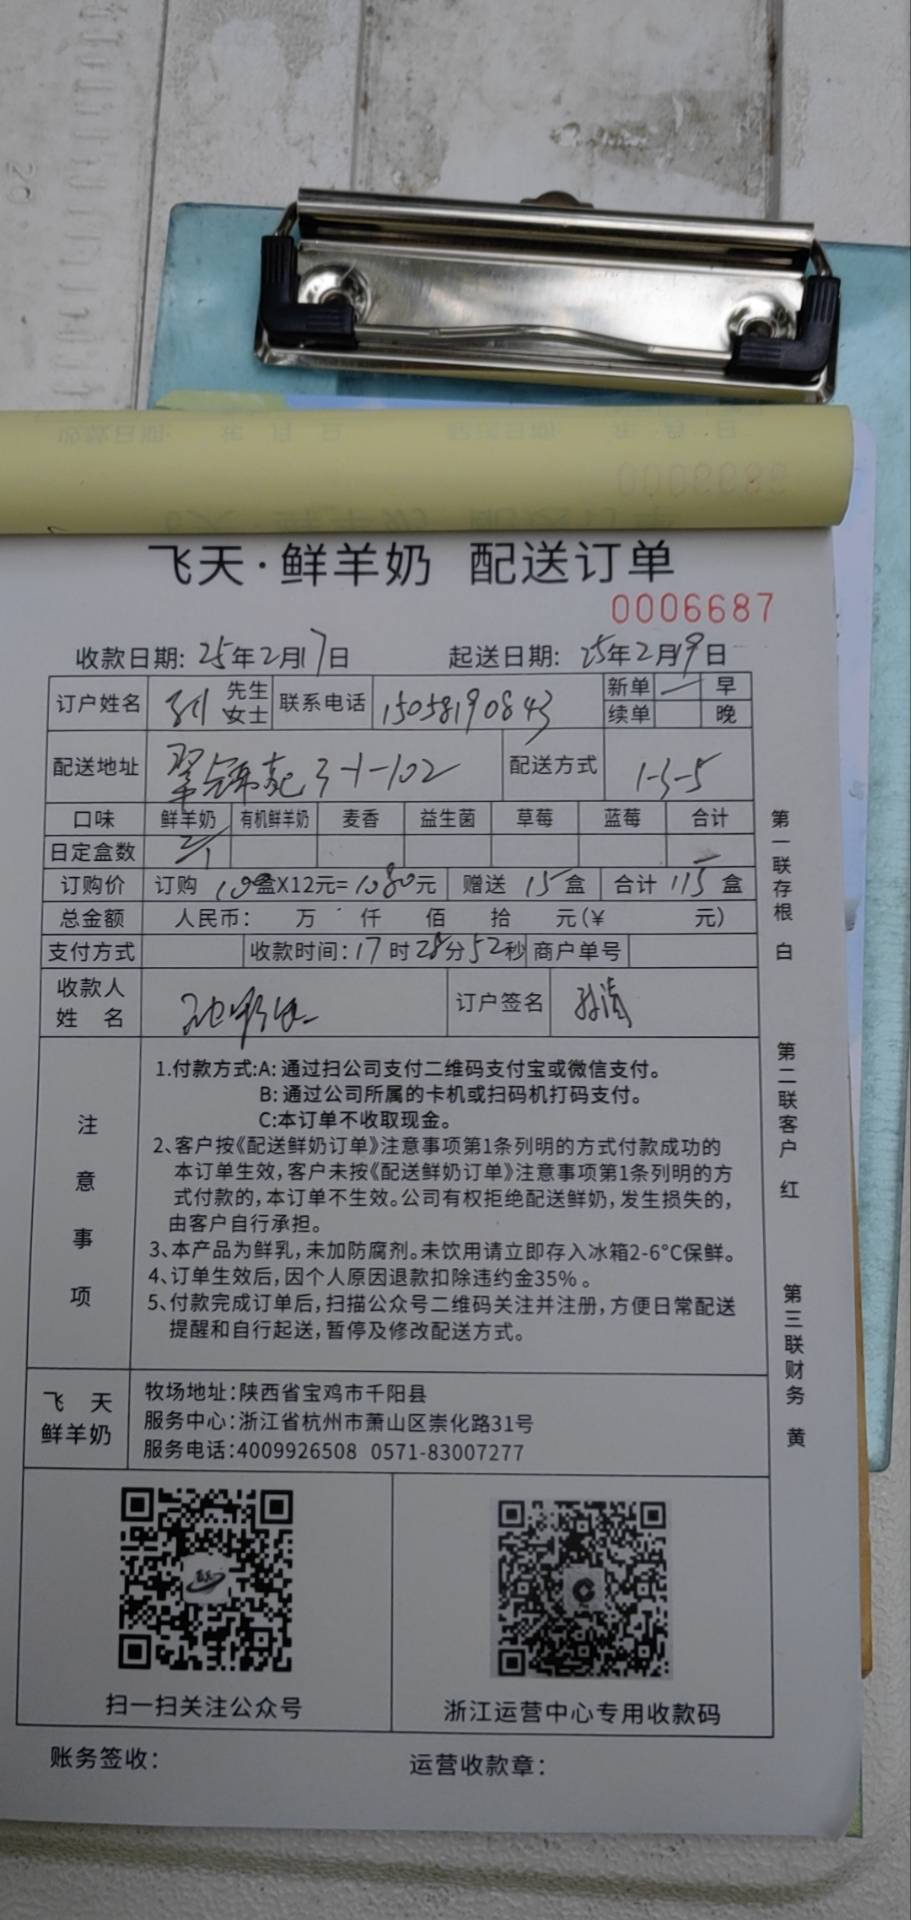 飞天·鲜羊奶 配送订单
0006687
收款日期: 25年2月17日 起送日期: 25年2月19日
订户姓名 先生 女士 联系电话 15058190843 新单 早
续单 晚
配送地址 3-1-102 配送方式 1-3-5
口味 鲜羊奶 有机鲜羊奶 麦香 益生菌 草莓 蓝莓 合计
日定盒数
订购价 订购 盒X12元=1080元 赠送 15盒 合计 115盒
总金额 人民币: 万 仟 佰 拾 元(¥ 元)
支付方式 收款时间:17时28分52秒 商户单号
收款人 姓 名 订户签名
注意事项
1.付款方式:A:通过扫公司支付二维码支付宝或微信支付。
B:通过公司所属的卡机或扫码机打码支付。
C:本订单不收取现金。
2、客户按《配送鲜奶订单》注意事项第1条列明的方式付款成功的
本订单生效,客户未按《配送鲜奶订单》注意事项第1条列明的方
式付款的,本订单不生效。公司有权拒绝配送鲜奶,发生损失的,
由客户自行承担。
3、本产品为鲜乳,未加防腐剂。未饮用请立即存入冰箱2-6°C保鲜。
4、订单生效后,因个人原因退款扣除违约金35%。
5、付款完成订单后,扫描公众号二维码关注并注册,方便日常配送
提醒和自行起送,暂停及修改配送方式。
飞 天
鲜羊奶
牧场地址:陕西省宝鸡市千阳县
服务中心:浙江省杭州市萧山区崇化路31号
服务电话:4009926508 0571-83007277
扫一扫关注公众号 浙江运营中心专用收款码
账务签收: 运营收款章:
第一联存根 白
第二联客户 红
第三联财务 黄